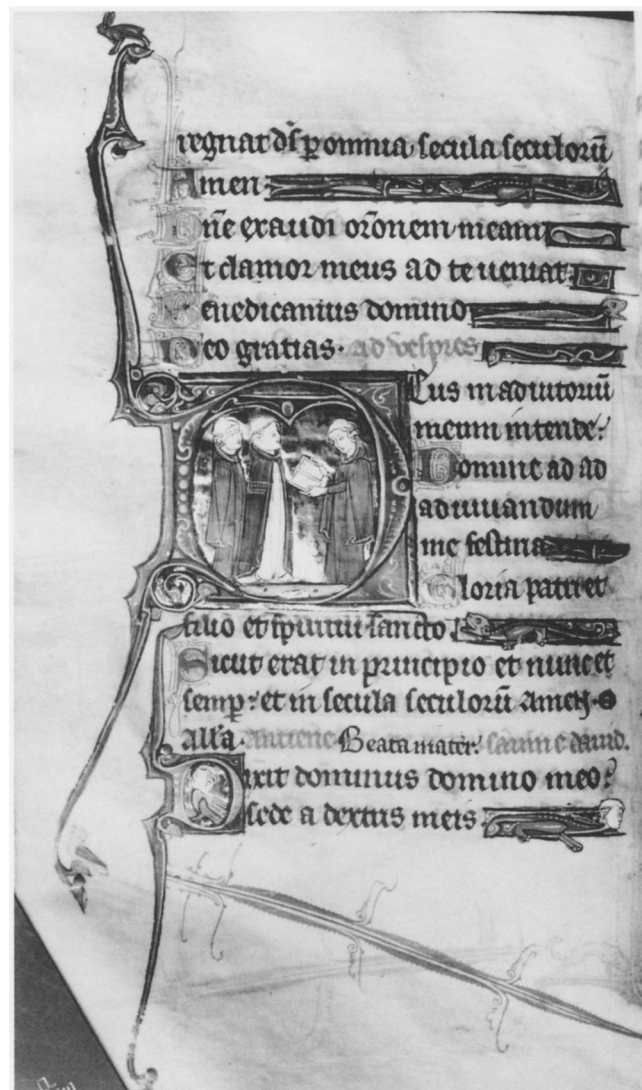 regnat ds p omnia secula seculorū
Amen
Dñe exaudi orōnem meam
Et clamor meus ad te ueniat
Benedicamus domino
Deo gratias. ad vespres
Deus in adiutoriū
meum intende:
Domine ad ad
adiuuandum
me festina
Gloria patri et
filio et spiritui sancto
Sicut erat in principio et nunc et
semp: et in secula seculorū Amen.
Alla. antiene Beata mater. saume dauid.
Dixit dominus domino meo:
sede a dextris meis